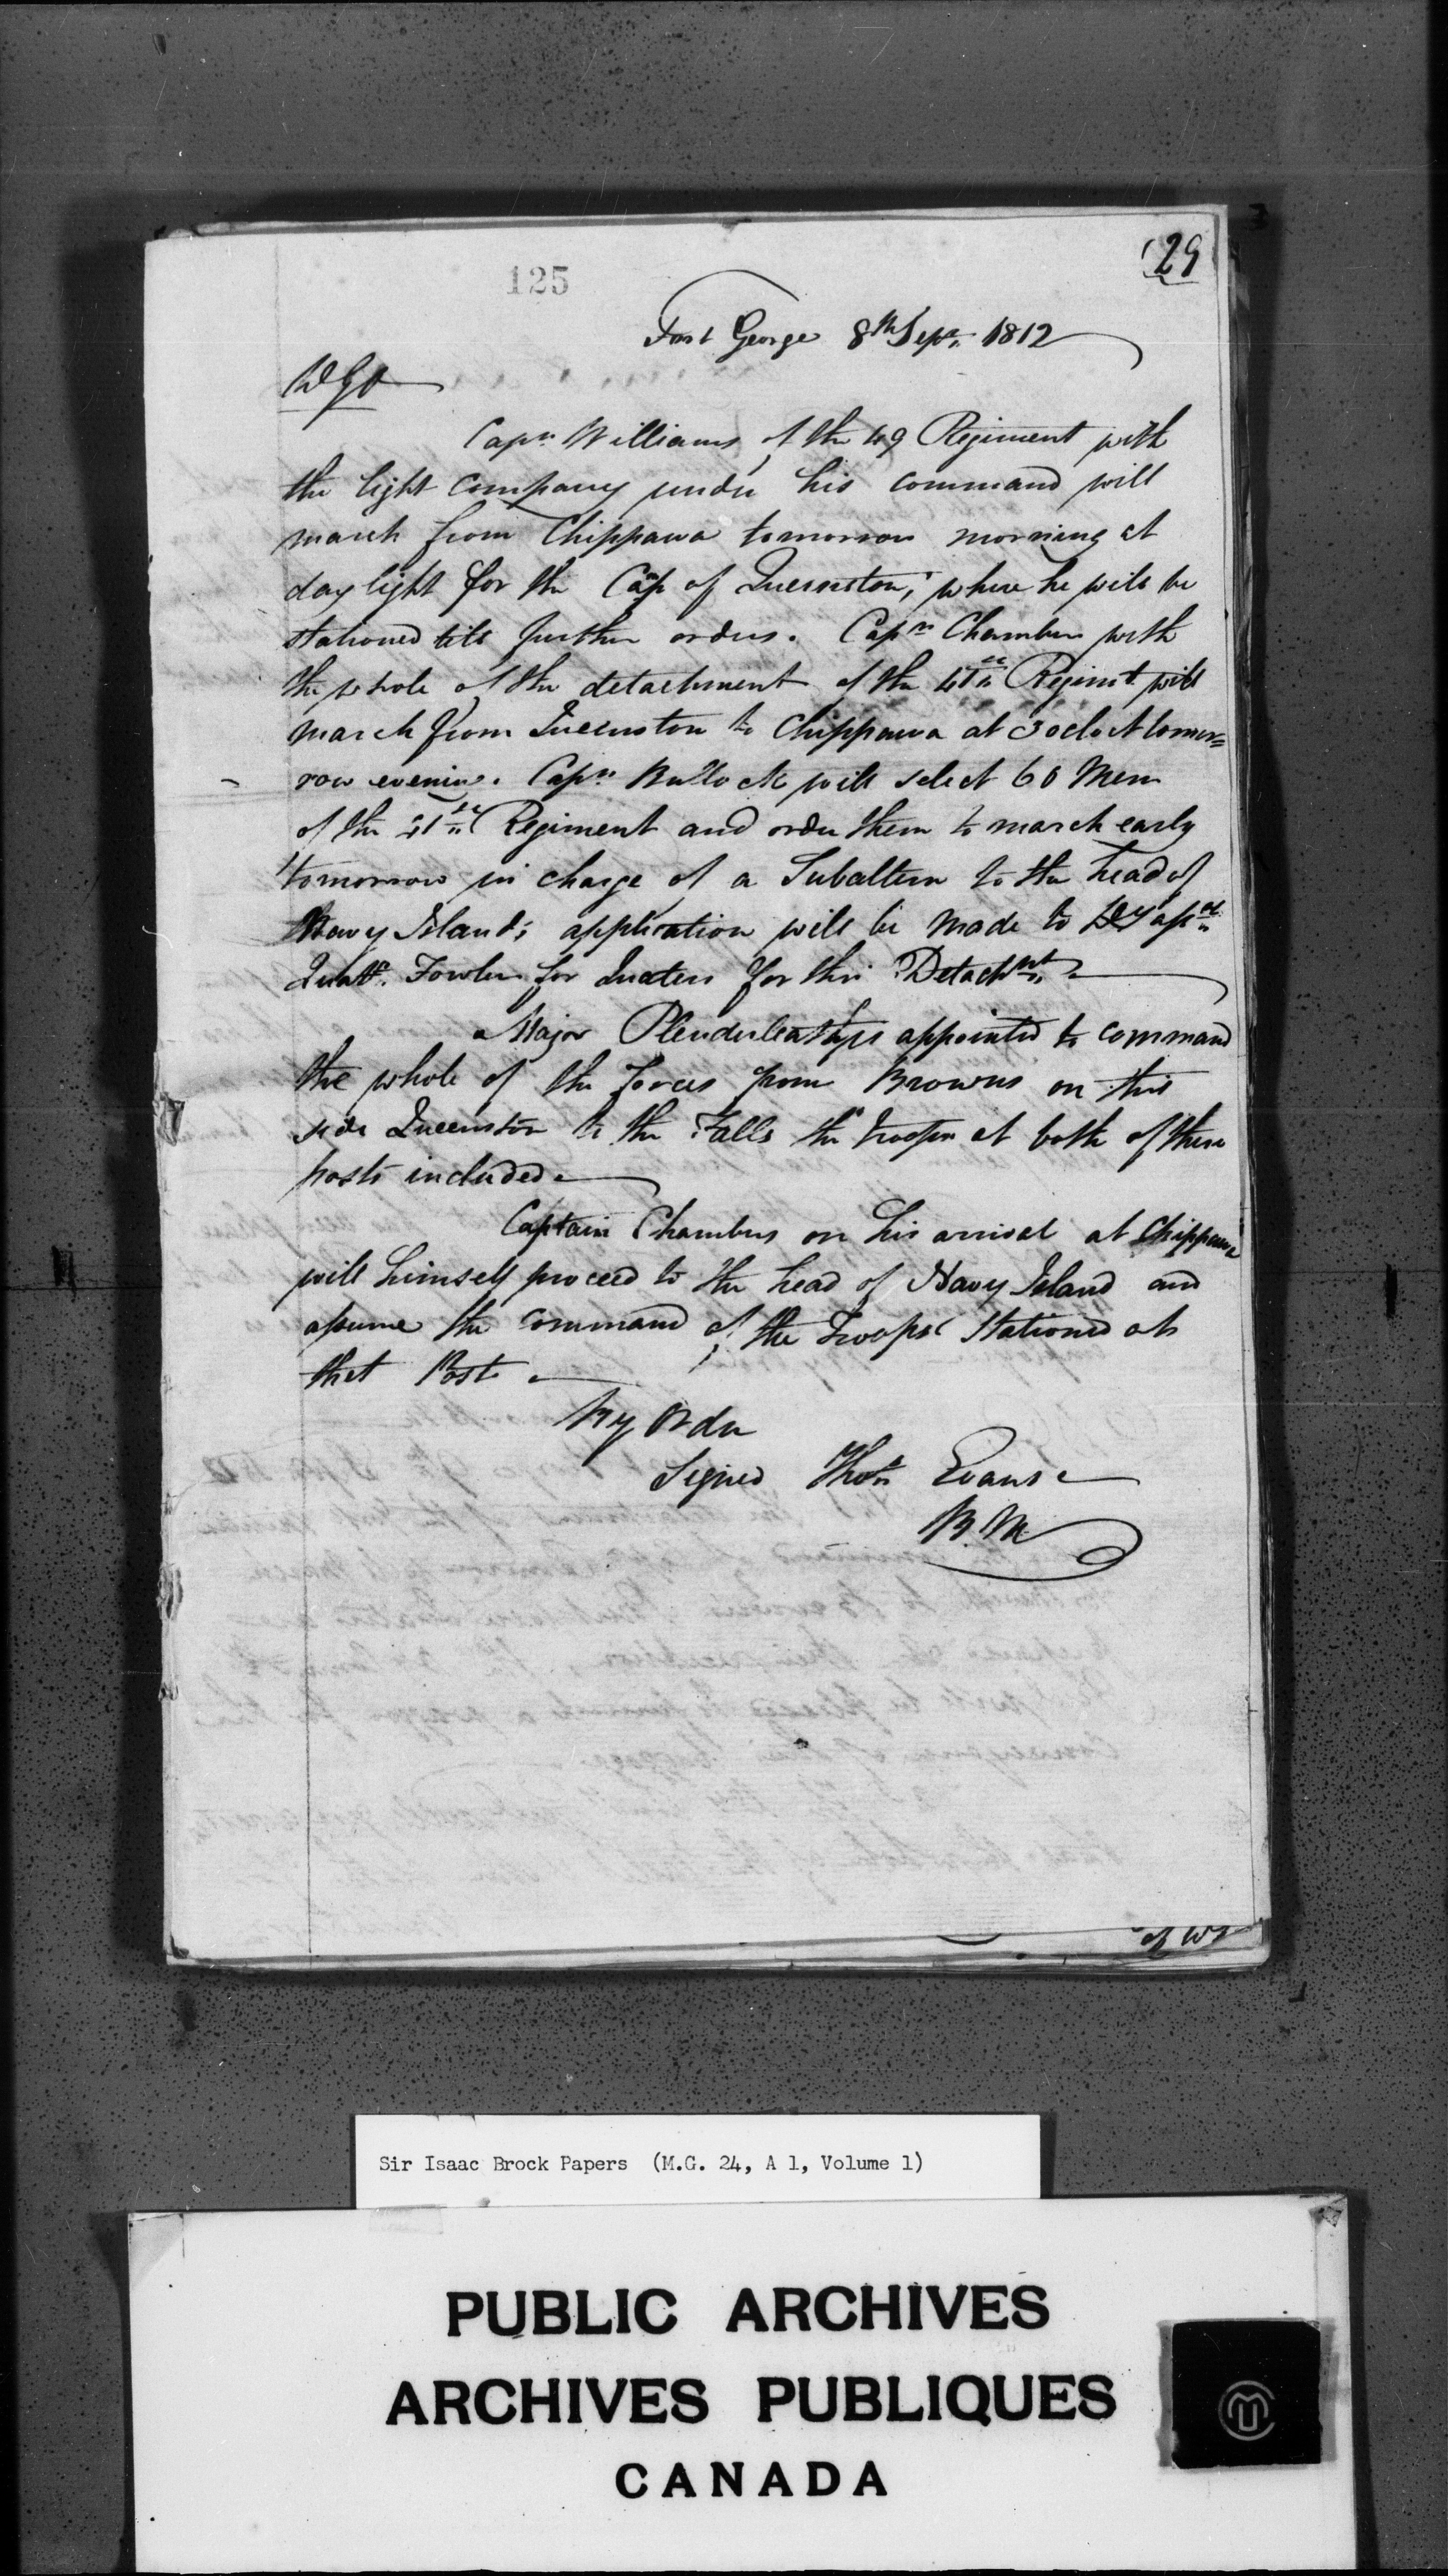 29
125
Fort George 8th Sept. 1812
DGO
Capn. Williams, of the 49 Regiment with
the light company under his command will
march from Chippawa tomorrow morning at
day light for the Camp of Queenston, where he will be
stationed till further orders. Capn Chambers with
the whole of the detachment of the 41st Regimt. will
march from Queenston to Chippawa at 3 oclock tomor=
row evening. Capn. Bullock will select 60 Men
of the 41st Regiment and order them to march early
tomorrow in charge of a Subaltern to the head of
Navy Island; application will be made to Dy
Fowler for Quarters for this Detachmt.
Major Plenderleath is appointed to command
the whole of the forces from Browns on this
side Queenston to the Falls the troops at both of these
posts included.
Captain Chambers on his arrival at Chippawa
will himself proceed to the head of Navy Island and
assume the command of the Troops Stationed at
that Post.
By Order
Signed Thos. Evans
B.M
Sir Isaac Brock Papers (M.G. 24, A 1, Volume 1)
PUBLIC ARCHIVES
ARCHIVES PUBLIQUES
CANADA